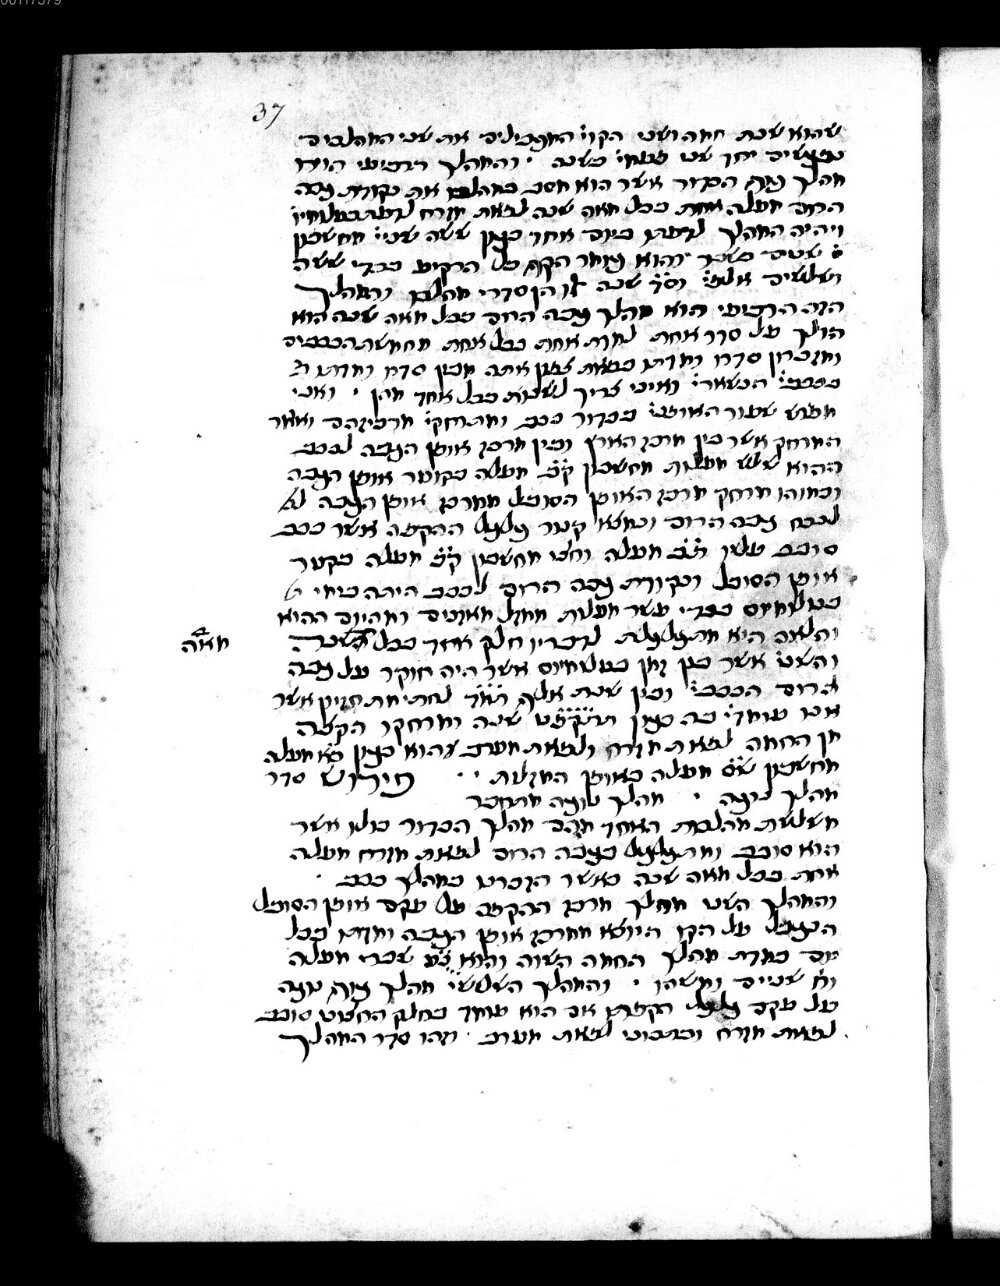 37
שהוא שנת חמה ושני הקוי׳ המגבילים את שני המהלכים
נפגשים יחד שני פעמי׳ בשנה ׳ והמהלך הרביעי הוא
מהלך גוף הכדור אשר הוא מסב במהלכו את נקודת גבה
הרום מעלה אחת בכל מאה שנה לפאת מזרח לדעת בטלמיו׳
ויהיה המהלך לדעתו ביום אחד כגון ששה שניי׳ מחשבון
שטים בשבר והוא גומר הקף כל הרקיע בכדי ששה
ושלשים אלפי׳ שנה אלו הן סדרי מהלכו והמהלך
הזה הרביעי הוא מהלך גבה הרום בכל מאה שנה הוא
הולך על סדר אחת למדה אחת בכל אחת מחמשת הככבים
ומזכרון סדרו ומדתו בפאת צפון אתה מבין סדרו ומדתו
בככבי׳ הנשארי׳ ואיני צריך לשנות בכל אחד מהן ׳ ואני
מפרש שעור האופני׳ בכדור ככב ומתרחקי׳ מרכזיהם ואומר
המרחק אשר בין מרכז הארץ ובין מרכז אופן הגבה לככב
ההוא שלש מעלות מחשבון ק״כ מעלה בקוטר אופן הגבה
וכמוהו מרחק מרכז האופן הסובל ממרכז אופן הגבה
לככח גבה הרום ונמצא קוטר גלגל ההקפה אשר ככב
סובב עליו מעלה וחצי מחשבון ק״כ מעלה בקטר
אופן הסובל ונקודת גבה הרום לככב היתה בימי
בטלמיוס בכדי עשר מעלות ממזל מאזנים ומהיום ההוא
והלאה היא מתגלגלת לדבריו חלק אחד בכל השנה
מאה
והשני׳ אשר בין זמן בטלמיוס אשר היה חוקר על גבה
הרום הככבי׳ ובין שנת אלף לחתימת חזיון אשר
אנו עומדי׳ בה כגון שנה ומרחקו הקצה
מן החמה לפאת מזרח ולפאת מערב והוא כגון מעלה
מחשבון ש״ס מעלה באופן המזלות ׳ ׳ פירוש סדר
מהלך נוגה ׳ מהלך נוגה מתחבר
משלשת מהלכות האחד מהם מהלך הכדור כולו אשר
הוא סובב ומתגלגל בגבה הרום לפאת מזרח מעלה
אחת בכל מאה שנה כאשר הזכרנו במהלך ככב ׳
והמהלך השני מהלך מרכז ההקפה על עקם אופן הסובל
הנגבל על הקו היוצא ממרכז אופן הגבה ומדתו בכל
יום במדת מהלך החמה השוה והוא שברי מעלה
וח׳ שניים ומשהו ׳ והמהלך השלישי׳ מהלך גוף נוגה
על עקם גלגל הקפתו אם הוא עומד בחלק החצוני סובב
לפאת מזרח ובתיכוני לפאת מערב ׳ וזהו סדר המהלך